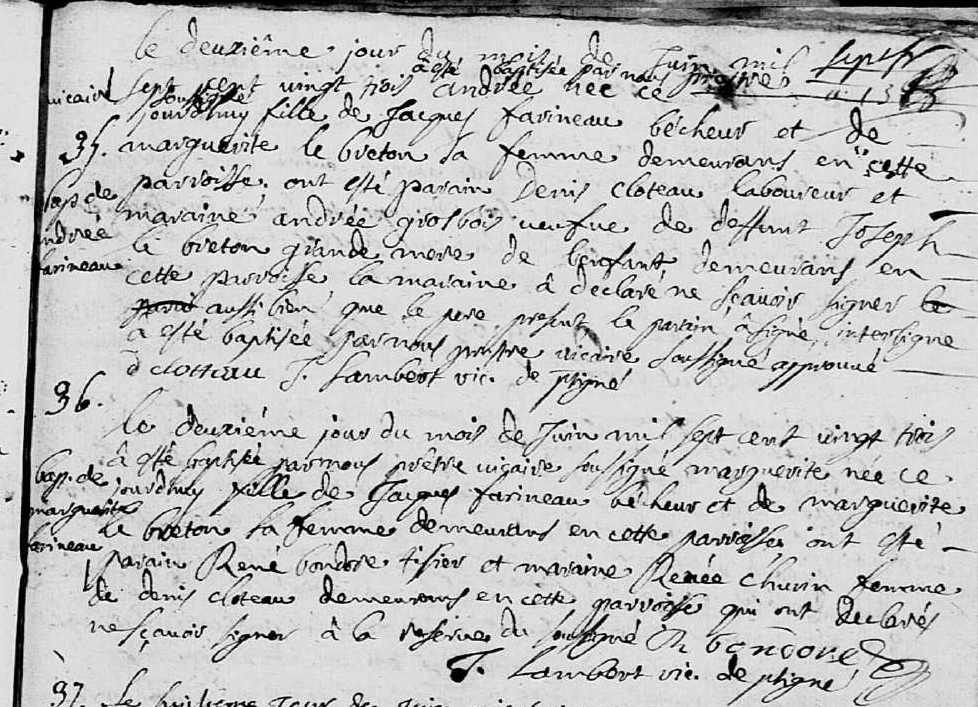 le deuxiême jour du mois de Juin mil septs
à esté baptisée par nous prestre
vicaire sept cent vingt trois andrée née ce
soussigné
jourdhuy fille de Jacques farineau bêcheur et de
35. marguerite le breton sa femme demeurans en cette
bap. de parroisse. ont esté parain Denis cloteau laboureur et
andrée maraine andrée grosbois veufve de deffunt Joseph
farineau le breton grande mere de l'enfant, demeurans en
cette parroisse la maraine à declaré ne sçavoir signer le
aussi bien que le pere present le parain à signé interligne
à esté baptisée par nous prestre vicaire soussigné approuvé
d clotteau J. Lambert vic. de pligné
36.
le deuxiéme jour du mois de Juin mil sept cent vingt trois
à esté baptisée par nous prêtre vicaire soussigné marguerite née ce
bap. de jourdhuy fille de Jacques farineau bêcheur et de marguerite
marguerite le breton sa femme demeurans en cette parroisse ont esté
farineau parain René bondore tisier et maraine Renée chuvin femme
de denis cloteau demeurans en cette parroisse qui ont declarés
ne sçavoir signer à la reserve du soussigné R bondore
J. Lambert vic. de pligné
37. Le huitieme Jour de Juin